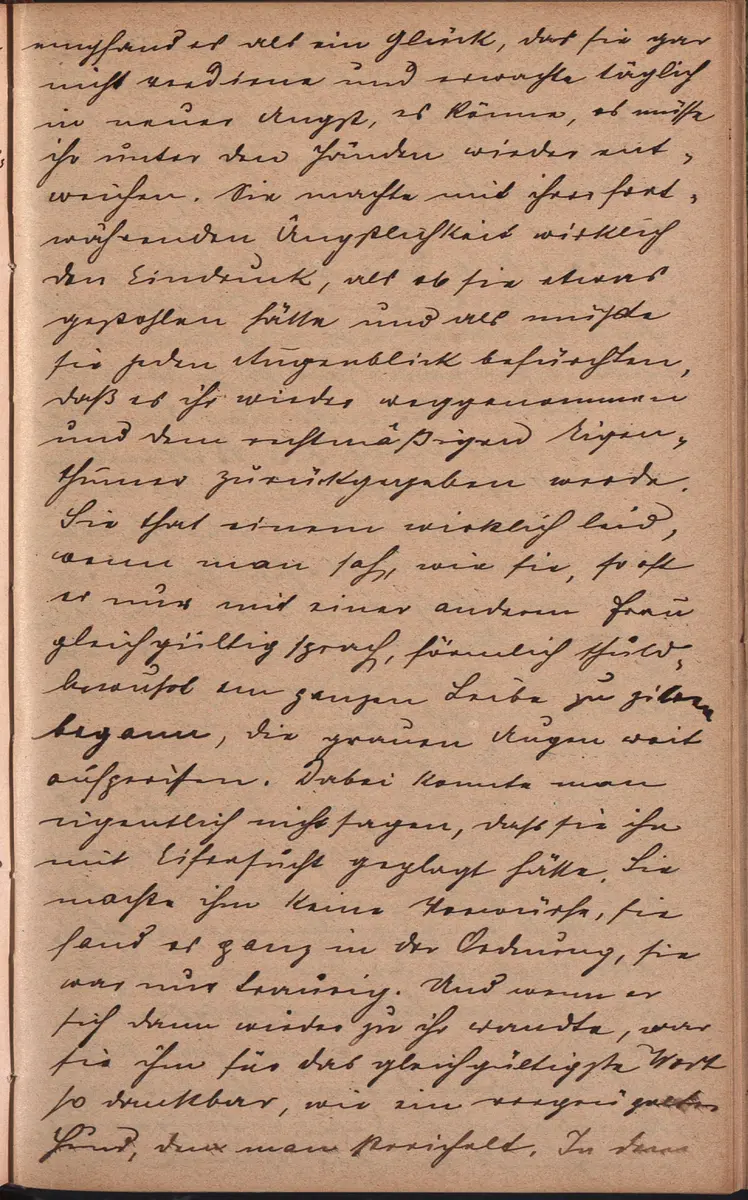 empfand es als ein Glück, das sie gar
nicht verdiene und erwachte täglich
in neuer Angst, es könne, es müsse
ihr unter den Händen wieder ent-
weichen. Sie machte mit ihrer fort-
währenden Ängstlichkeit wirklich
den Eindruck, als ob sie etwas
gestohlen hätte und als müßte
sie jeden Augenblick befürchten,
daß es ihr wieder weggenommen
und dem rechtmäßigen Eigen-
thümer zurückgegeben werde.
Sie that einem wirklich leid,
wenn man sah, wie sie, so oft
er nur mit einer anderen Frau
gleichgültig sprach, förmlich schuld-
bewußt am ganzen Leibe zu zittern
begann, die grauen Augen weit
aufgerissen. Dabei konnte man
eigentlich nicht sagen, dass sie ihn
mit Eifersucht geplagt hätte. Sie
machte ihm keine Vorwürfe, sie
fand es ganz in der Ordnung, sie
war nur traurig. Und wenn er
sich dann wieder zu ihr wandte, war
sie ihm für das gleichgültigste Wort
so dankbar, wie ein
Hund, den man streichelt. In